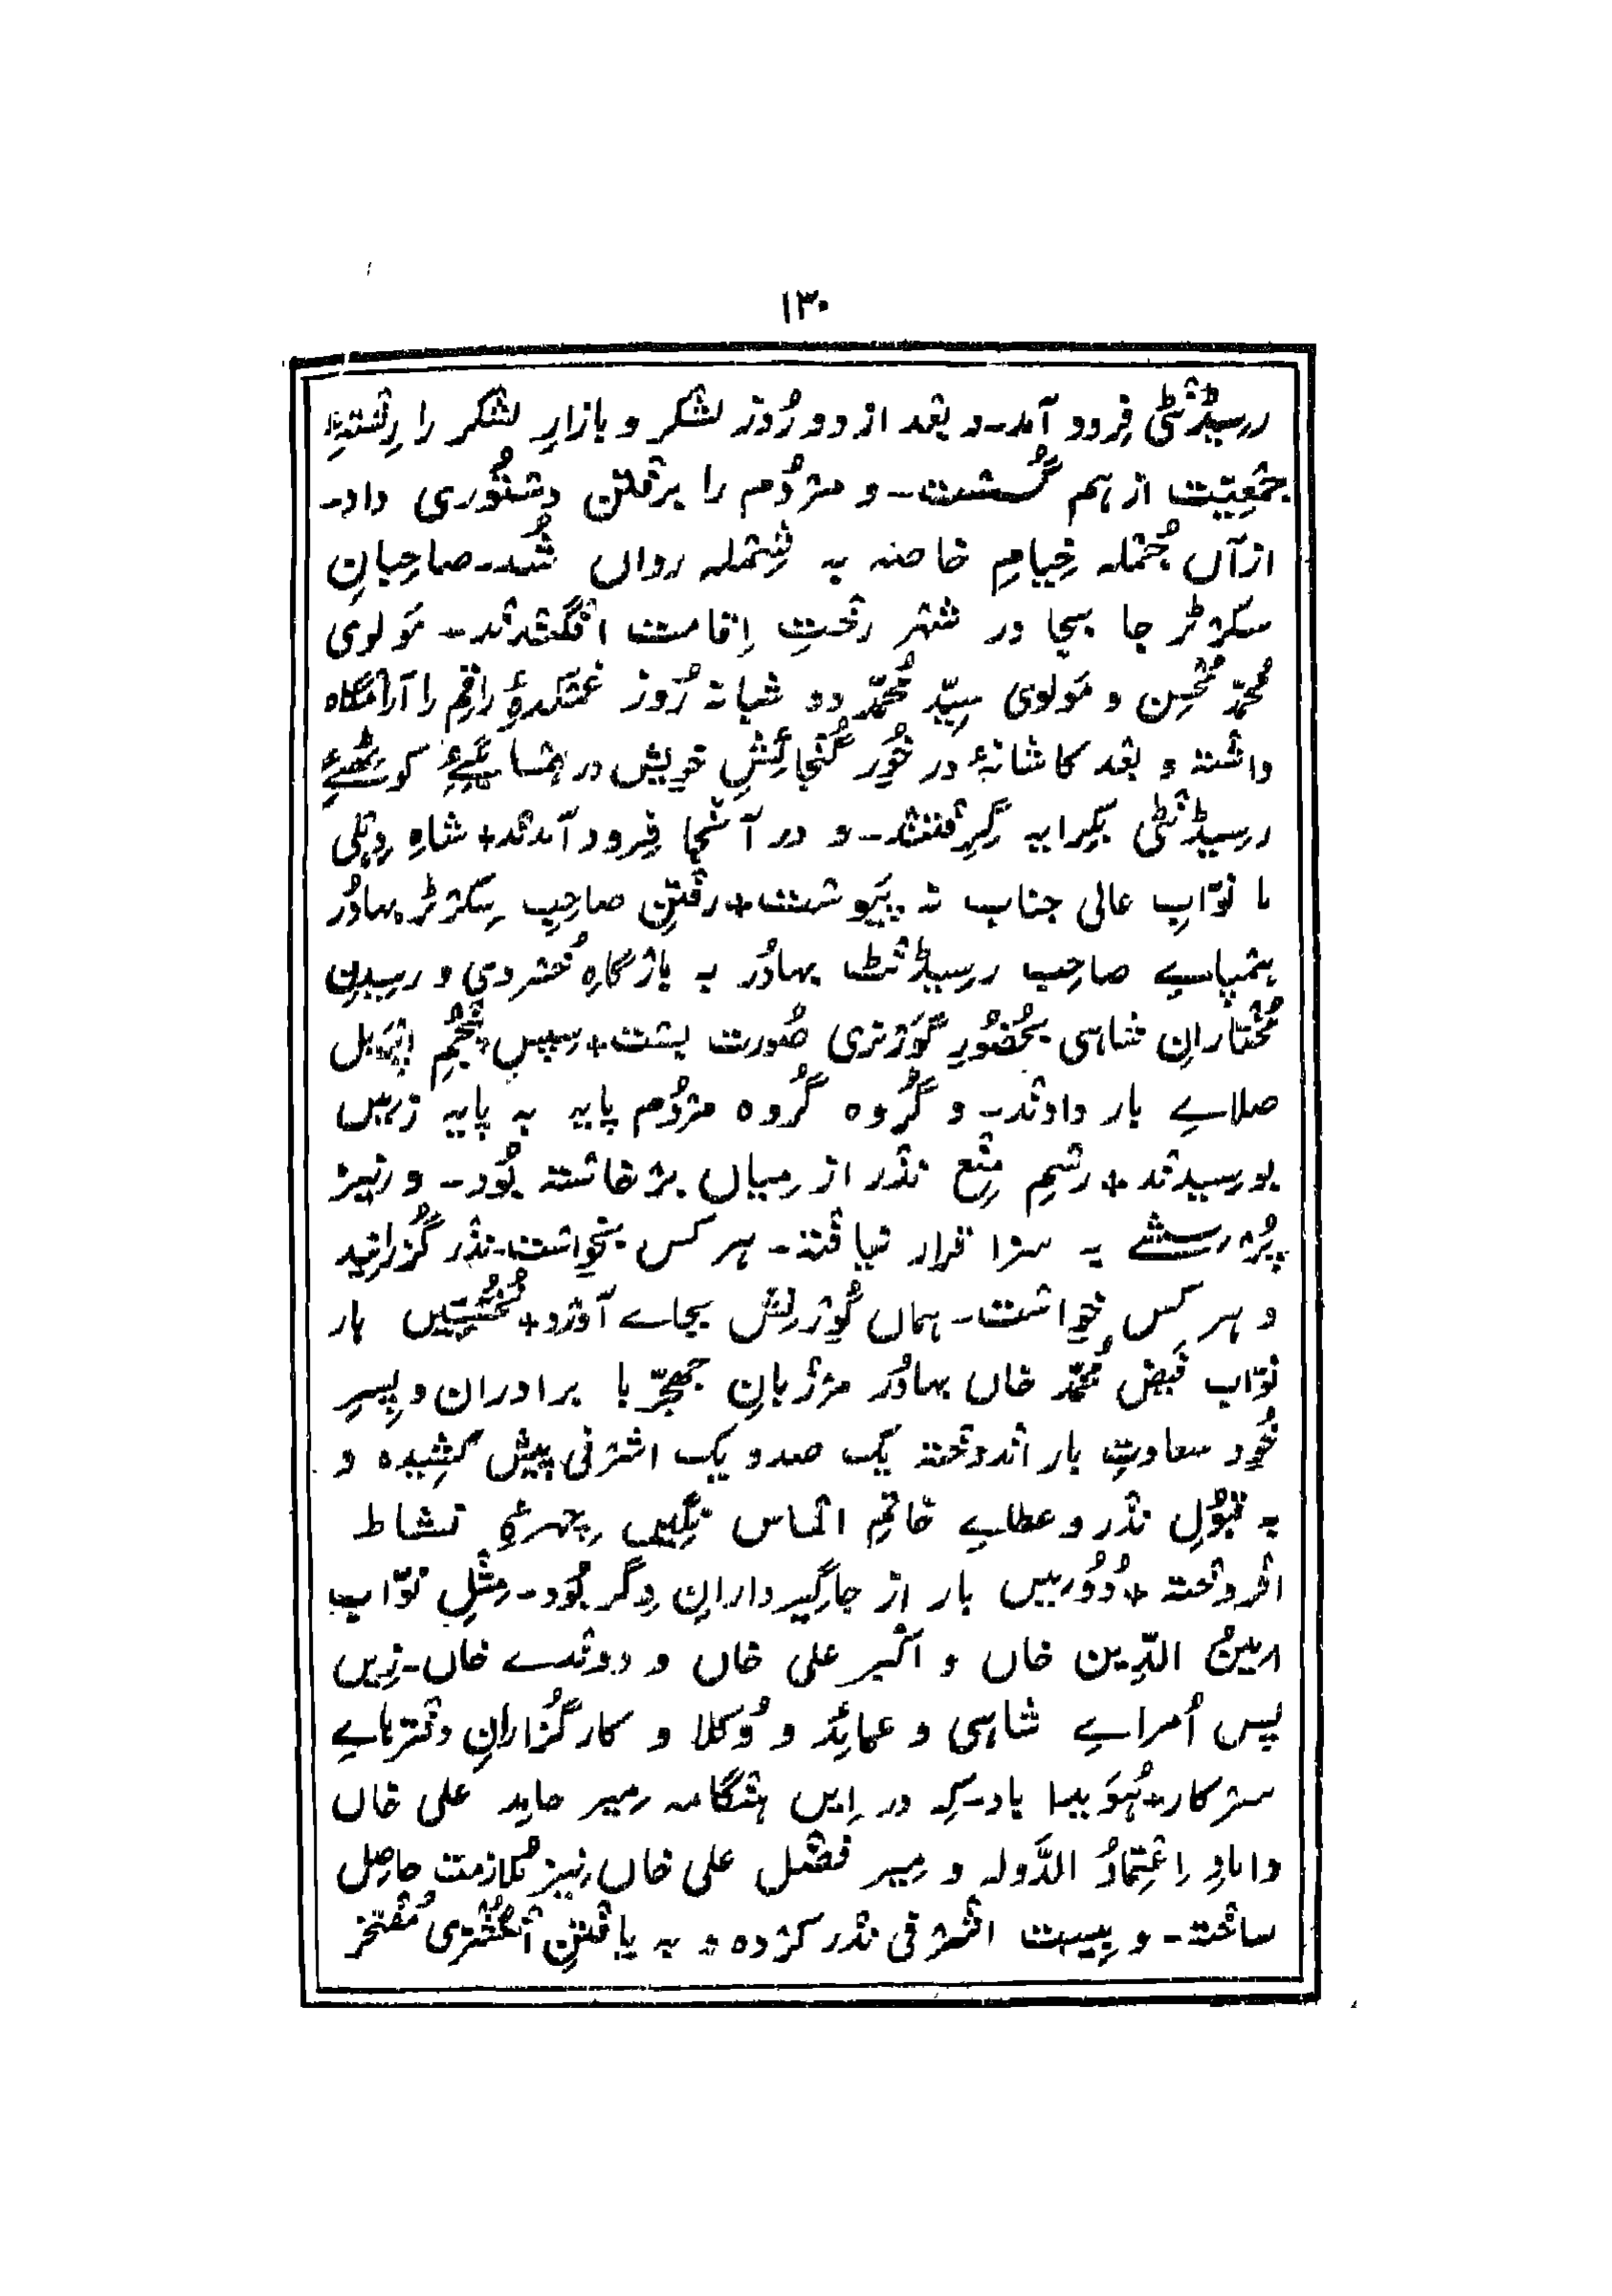 ۱۳۰
رزیڈنٹی فِرود آمد۔ و بعْد از دو رُوز لشکر و بازارِ لشکر را رِشْتۂ
جمْعِیّت از ہم گُسست۔ و مرْدُم را برفْتن دسْتُوری داد۔
ازآں جُمْلہ خِیامِ خاصہ بہ شِمْلہ رواں شُد۔ صاحِبانِ
سکرْٹر جا بجا در شہْر رخْتِ اِقامت افْگنْدنْد۔ مَولوی
مُحمّد مُحْسِن و مَولوی سیّد مُحمّد دو شبانہ رُوز غمْکدۂ راقِم را آرامْگاہ
داشْتہ و بعْد کاشانۂ در خُورِ گُنْجائِشِ خویش در ہمْسایگیِٔ کوٹھیِٔ
رزیڈنْٹی بکِرایہ گِرِفْتنْد۔ و در آنْجا فِرود آمدنْد+ شاہِ دِہْلی
با نوّابِ عالی جناب نہ پیَوست+ رفْتنِ صاحِب سِکرْٹر بہادُر
بہمْپائے صاحِب رزیڈنْٹ بہادُر بہ بارْگاہِ خُسْروی و رسِیدنِ
مُخْتارانِ شاہی بحُضُورِ گَورْنری صُورت بسْت+ سِپس پنْجُمِ اپْریل
صلائے بار دادنْد۔ و گُروہ گُروہ مرْدُم پایہ بہ پایہ زمیں
بوسیدنْد+ رسْمِ منْعِ نذْر از مِیاں برْخاسْتہ بُود۔ و نیز
پُرسشے بہ سزا قرار نیافْتہ۔ ہر کس بخواسْت۔ نذْر گُزرانید
و ہر کس خواسْت۔ ہماں کُورْنِش بجائے آورْد+ نُخُسْتِیں بار
نوّاب فَیض مُحمّد خاں بہادُر مرْزبانِ جھجّر با برادران و پِسرِ
خُود سعادتِ بار انْدوخْتہ یک صد و یک اشْرفی پیش کشِیدہ و
بہ قبُولِ نذْر و عطائے خاتمِ الْماس نِگیں چِہرۂ نشاط
افْروخْتہ+ دُوُمیں بار از جاگیردارانِ دِگر بُود۔ مِثْلِ نوّاب
امینُ الدِّین خاں و اکْبر علی خاں و دونْدے خاں۔ زِیں
پس اُمرائے شاہی و عمائِد و وُکلا و کارگُزارانِ دفْترہائے
سرْکار+ ہُوَیدا باد۔ کہ در اِیں ہنْگامہ میر حامِد علی خاں
دامادِ اِعْتِمادُ الدَّولہ و میر فضْل علی خاں نیز مُلازمت حاصِل
ساخْتہ۔ و بِیست اشْرفی نذْر کرْدہ و بہ یافْتنِ انْگُشْتری مُفْتخر